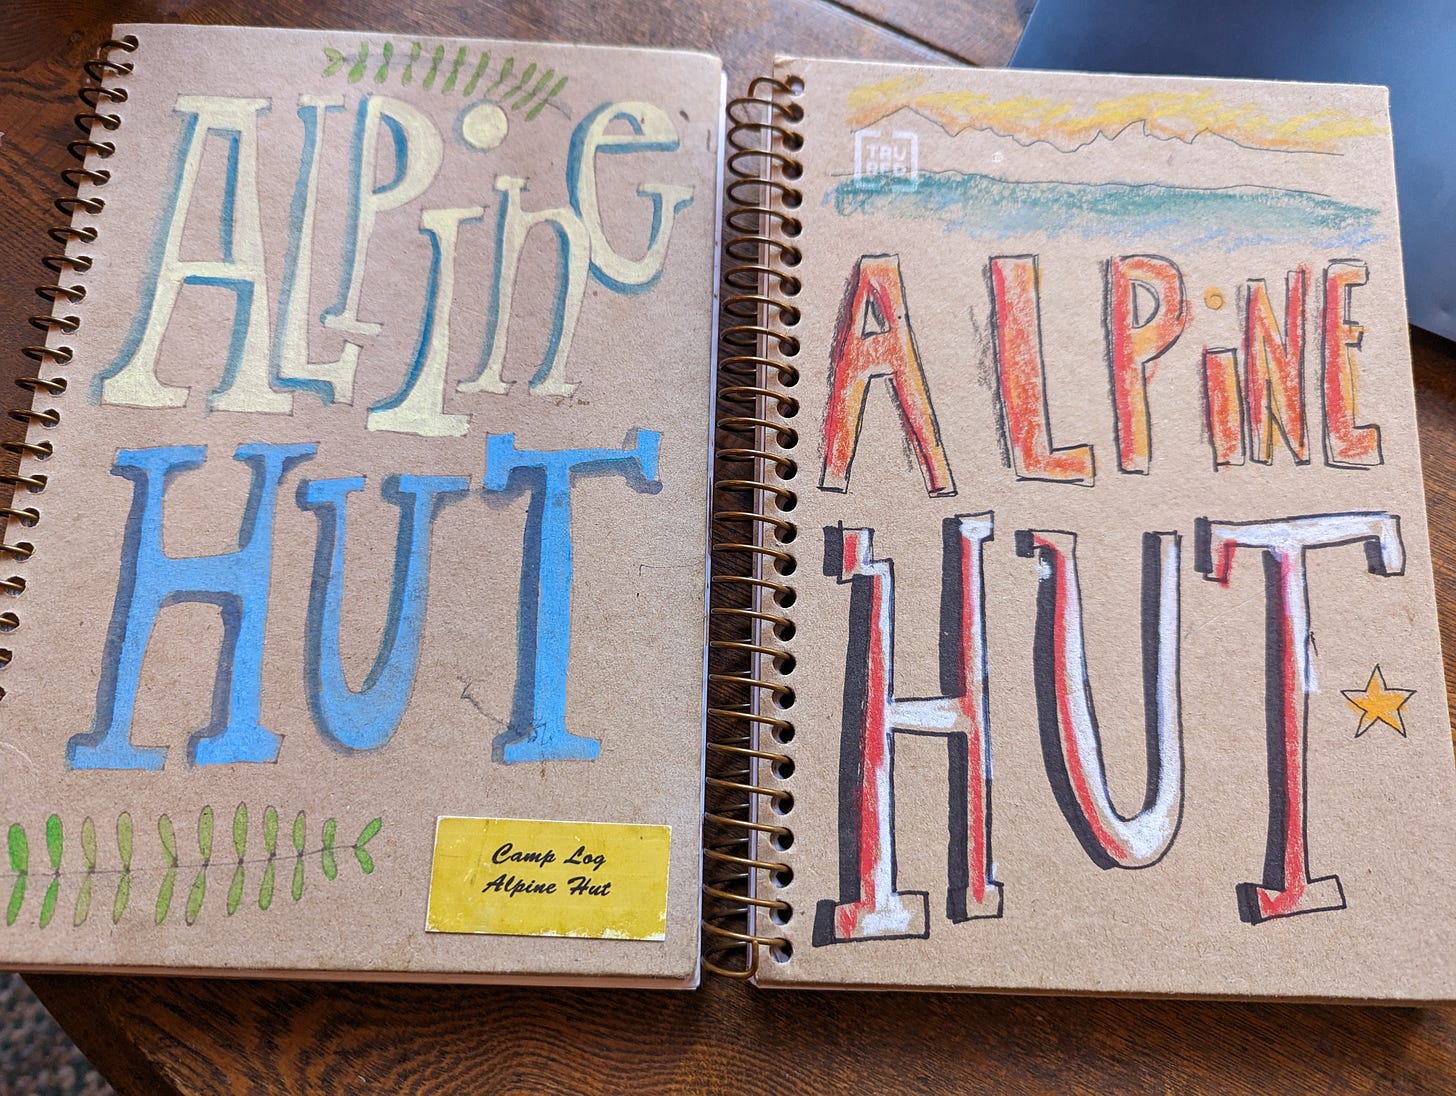 ALPinG
HUT
Camp Log
Alpine Hut
TRU
RED
ALPiNE
HUT